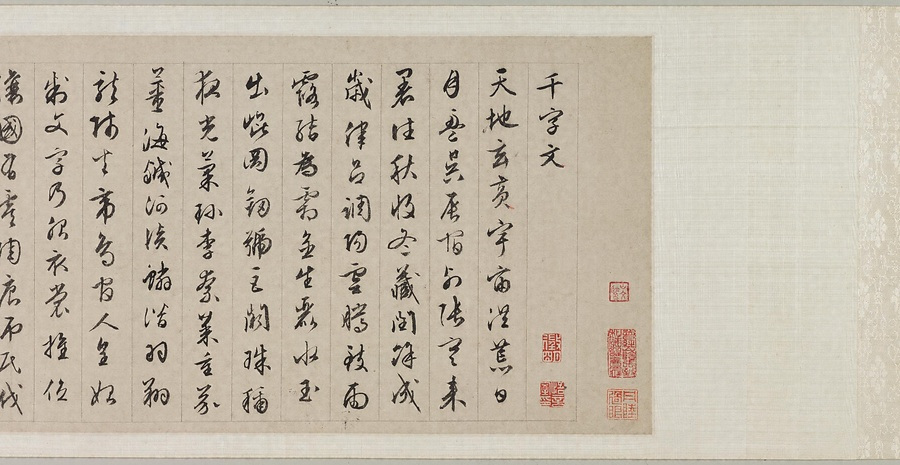 千字文
天地玄黃宇宙洪荒日
月盈昃辰宿列張寒來
暑往秋收冬藏閏餘成
歲律呂調陽雲騰致雨
露結為霜金生麗水玉
出崐岡劍號巨闕珠稱
夜光菓珍李柰菜重芥
薑海鹹河淡鱗潛羽翔
龍師火帝鳥官人皇始
制文字乃服衣裳推位
讓國有虞陶唐弔民伐